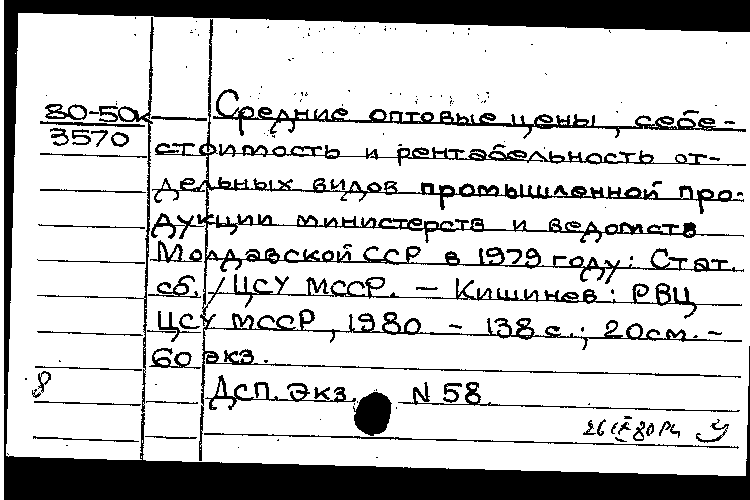 80-50к
3570
Средние оптовые цены, себе-
стоимость и рентабельность от-
дельных видов промышленной про-
дукции министерств и ведомств
Молдавской ССР в 1979 году: Стат.
сб. / ЦСУ МССР. - Кишинев: РВЦ
ЦСУ МССР, 1980 - 138 с.; 20 см. -
60 экз.
8
Дсп. Экз. N 58.